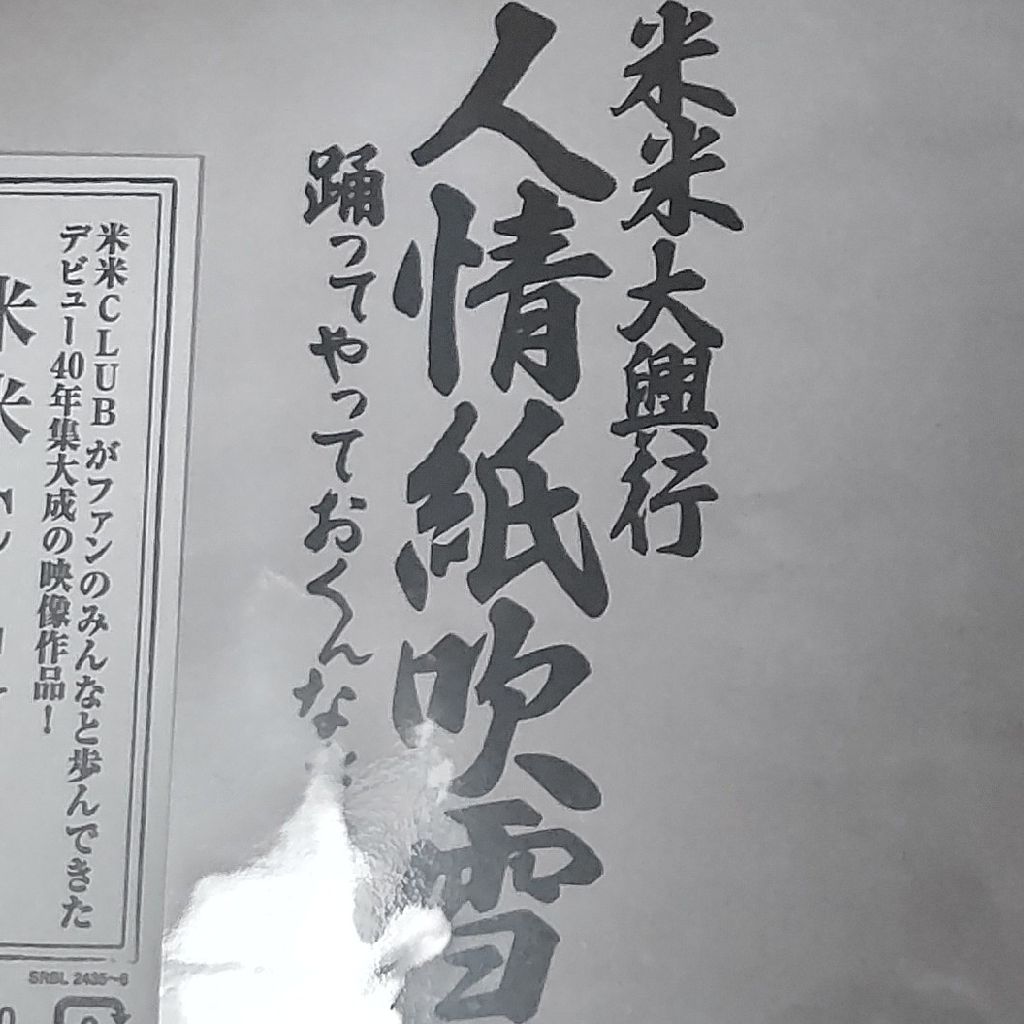 米米大興行
人情紙吹雪
踊ってやっておくんな…
米米CLUBがファンのみんなと歩んできた
デビュー40年集大成の映像作品!
米米
SRBL 2435~6